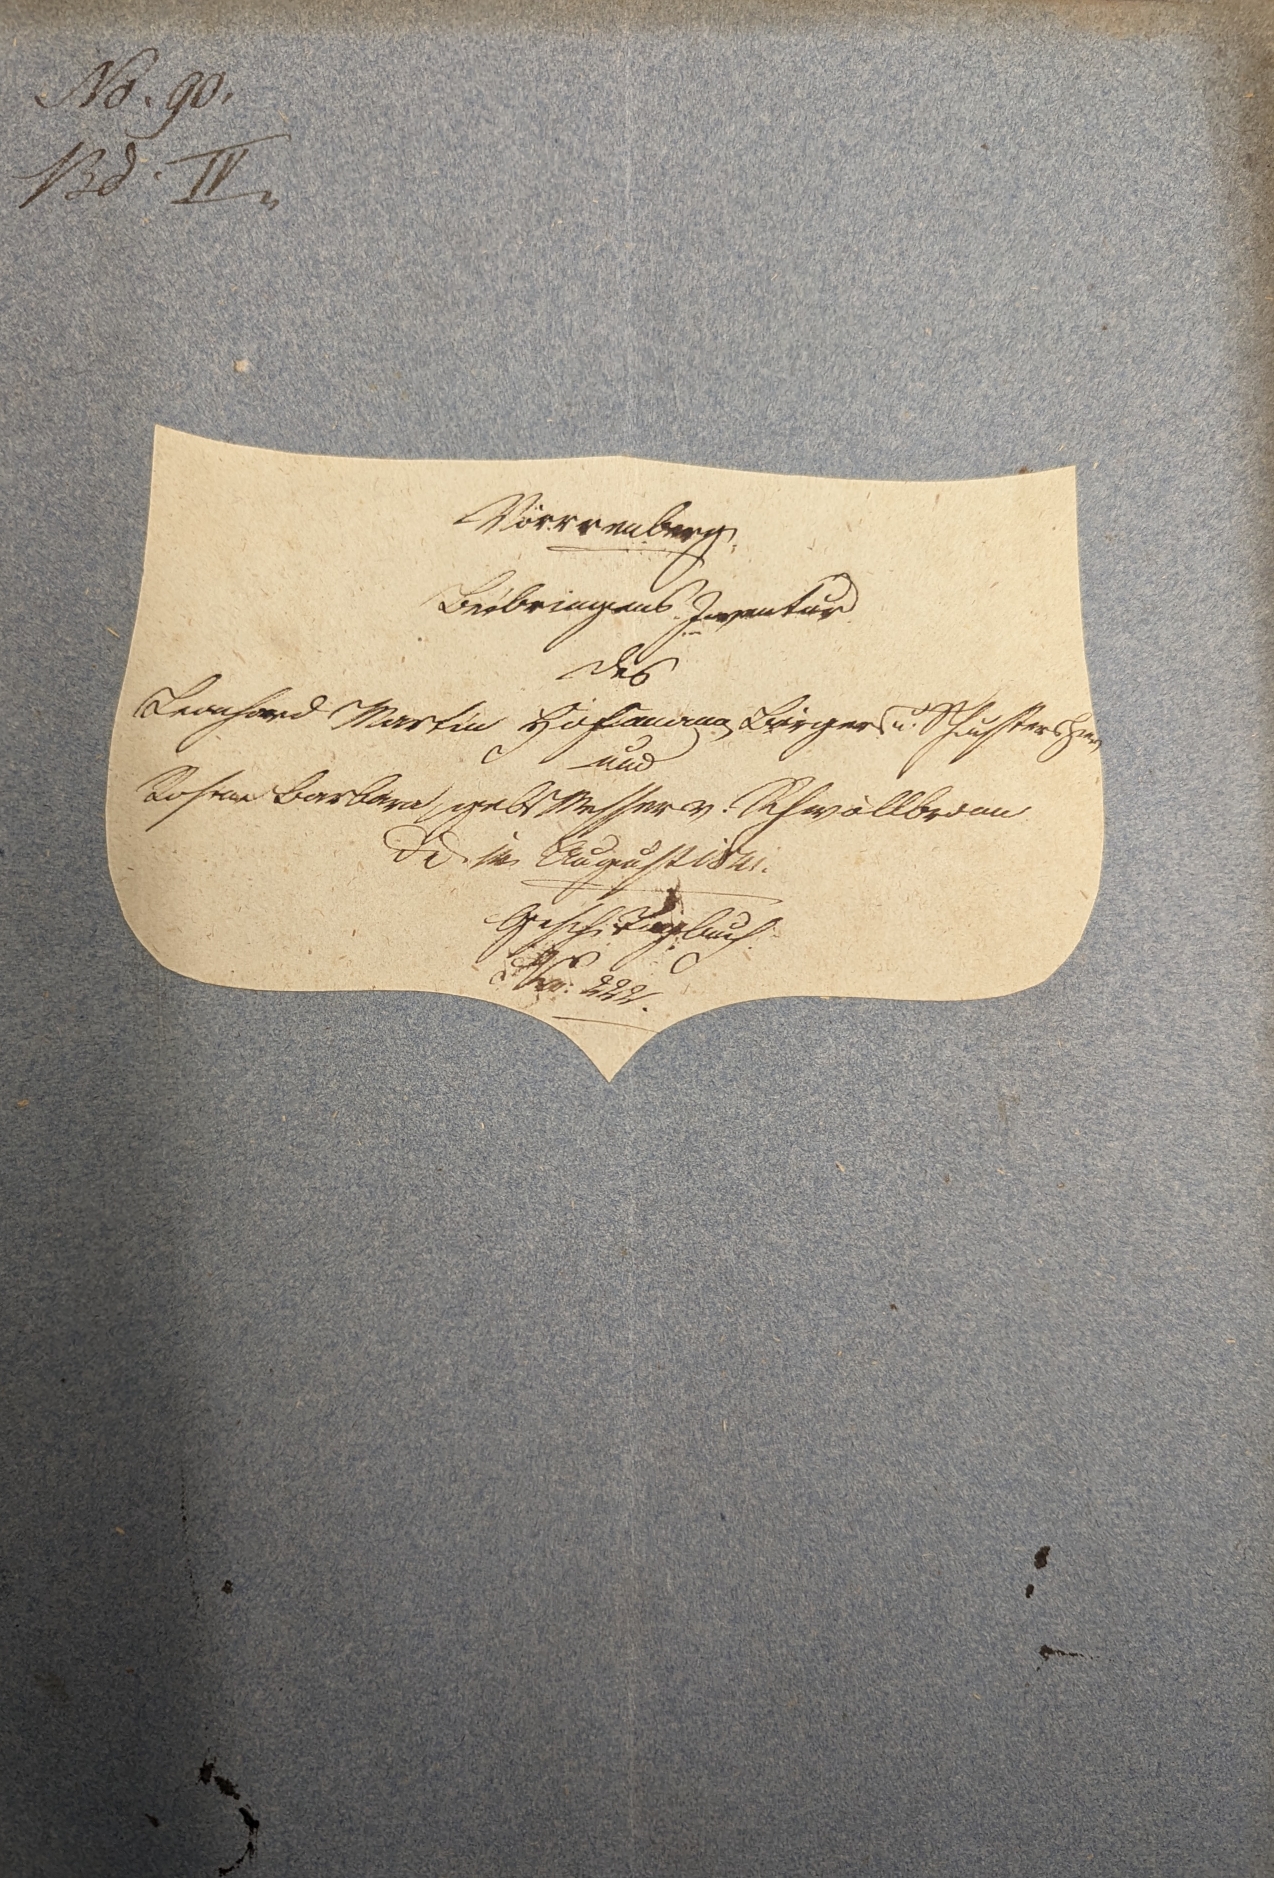 No. 90.
Bd. IV
Dörrenberg.
Beibringens Inventar
des
Leonhard Martin Hofmann, Bürgers u. Schusters hier
und
Rosine Barbara, geb. Messer v. Schwollbronn
d. d. 10. August 1841.
Gesch. Tagbuch
Nr. 222.